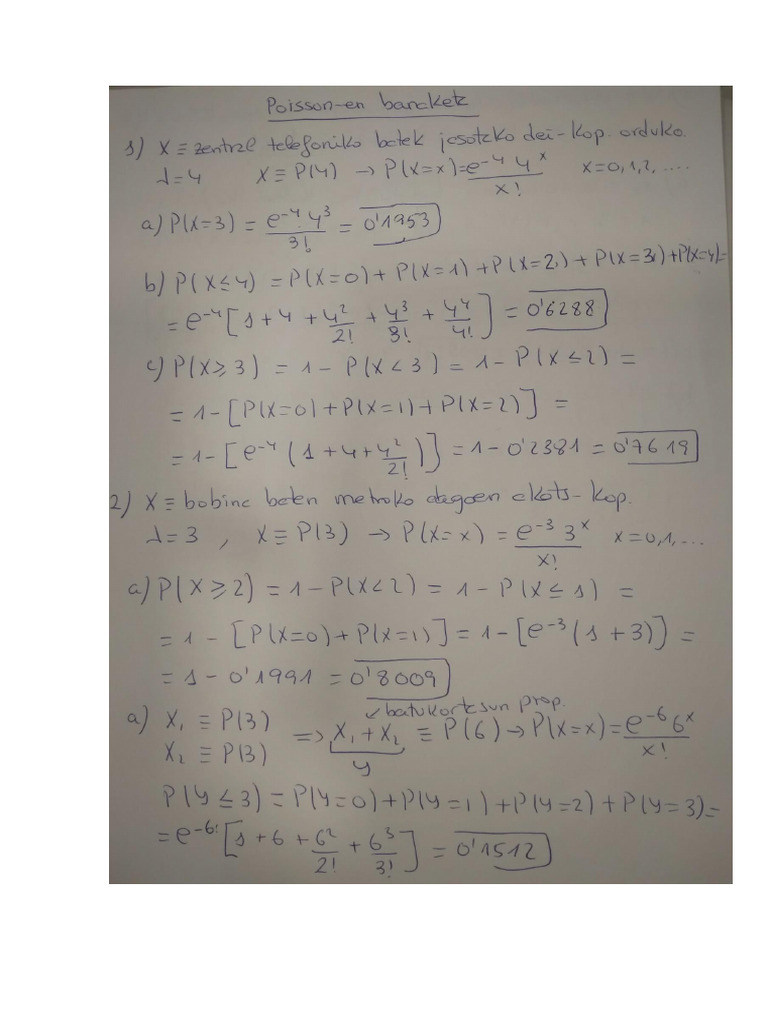 Poisson-en banaketa
1) X ≡ zentral telefoniko batek jasotako dei-kop. orduko.
λ=4 X ≡ P(4) → P(X=x) = e^-4 4^x / x! x=0,1,2,....
a) P(X=3) = e^-4 · 4^3 / 3! = 0'1953
b) P(X≤4) = P(X=0) + P(X=1) + P(X=2) + P(X=3) + P(X=4) =
= e^-4 [1+4+4^2/2! + 4^3/3! + 4^4/4!] = 0'6288
c) P(X≥3) = 1 - P(X<3) = 1 - P(X≤2) =
= 1 - [P(X=0) + P(X=1) + P(X=2)] =
= 1 - [e^-4 (1+4+4^2/2!)] = 1 - 0'2381 = 0'7619
2) X ≡ bobina baten metroko dagoen akats-kop.
λ=3 , X ≡ P(3) → P(X=x) = e^-3 3^x / x! x=0,1,...
a) P(X≥2) = 1 - P(X<2) = 1 - P(X≤1) =
= 1 - [P(X=0) + P(X=1)] = 1 - [e^-3 (1+3)] =
= 1 - 0'1991 = 0'8009
↙ batukortasun prop.
a) X1 ≡ P(3)
X2 ≡ P(3) ⇒ X1 + X2 ≡ P(6) → P(X=x) = e^-6 6^x / x!
Y
P(Y≤3) = P(Y=0) + P(Y=1) + P(Y=2) + P(Y=3) =
= e^-6 [1+6+6^2/2! + 6^3/3!] = 0'1512